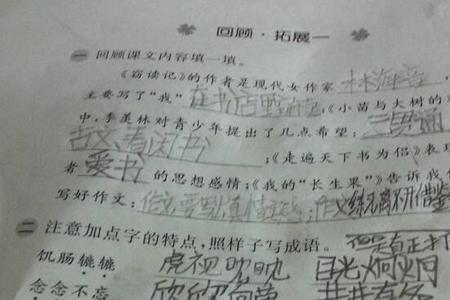 回顾·拓展一
一 回顾课文内容填一填。
《窃读记》的作者是现代女作家 林海音
主要写了“我” 在书店 ;《小苗与大树的
中,季羡林对青少年提出了几点希望: 三贯通
古文 看闲书 ;《走遍天下书为侣》表
者 爱书 的思想感情;《我的“长生果”》告诉我
写好作文: 作文要 真情实 ;作文 离不开借鉴
二 注意加点字的特点,照样子写成语。
饥肠辘辘 虎视眈眈 目光炯炯
念念不忘 欣欣向荣 井井有条